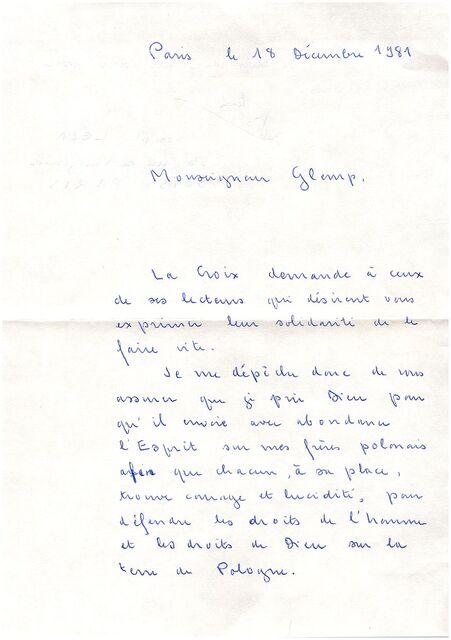 Paris le 18 Décembre 1981
Monseigneur Glemp.
La Croix demande à ceux
de ses lecteurs qui désirent vous
exprimer leur solidarité de le
faire vite.
Je me dépêche donc de vous
assurer que je prie Dieu pour
qu'il envoie avec abondance
l'Esprit sur mes frères polonais
afin que chacun, à sa place,
trouve courage et lucidité, pour
défendre les droits de l'homme
et les droits de Dieu sur la
terre de Pologne.